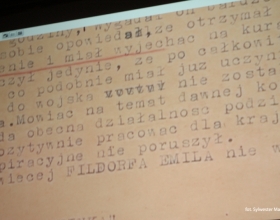 godziny, wygadał on bardzo
sobie opowiedał, że otrzymał
nie i miał wyjechać na kur
czył jedynie, że po całkowi
co podotnie miał już uczyn
do wojska nie zosta
a. Mówiąc na temat dawnej ko
ia obecna działalność podzi
ozytywnie pracować dla kraj
piracyjne nie poruszył.
więcej FILDORFA EMILA nie w
fot. Sylwester